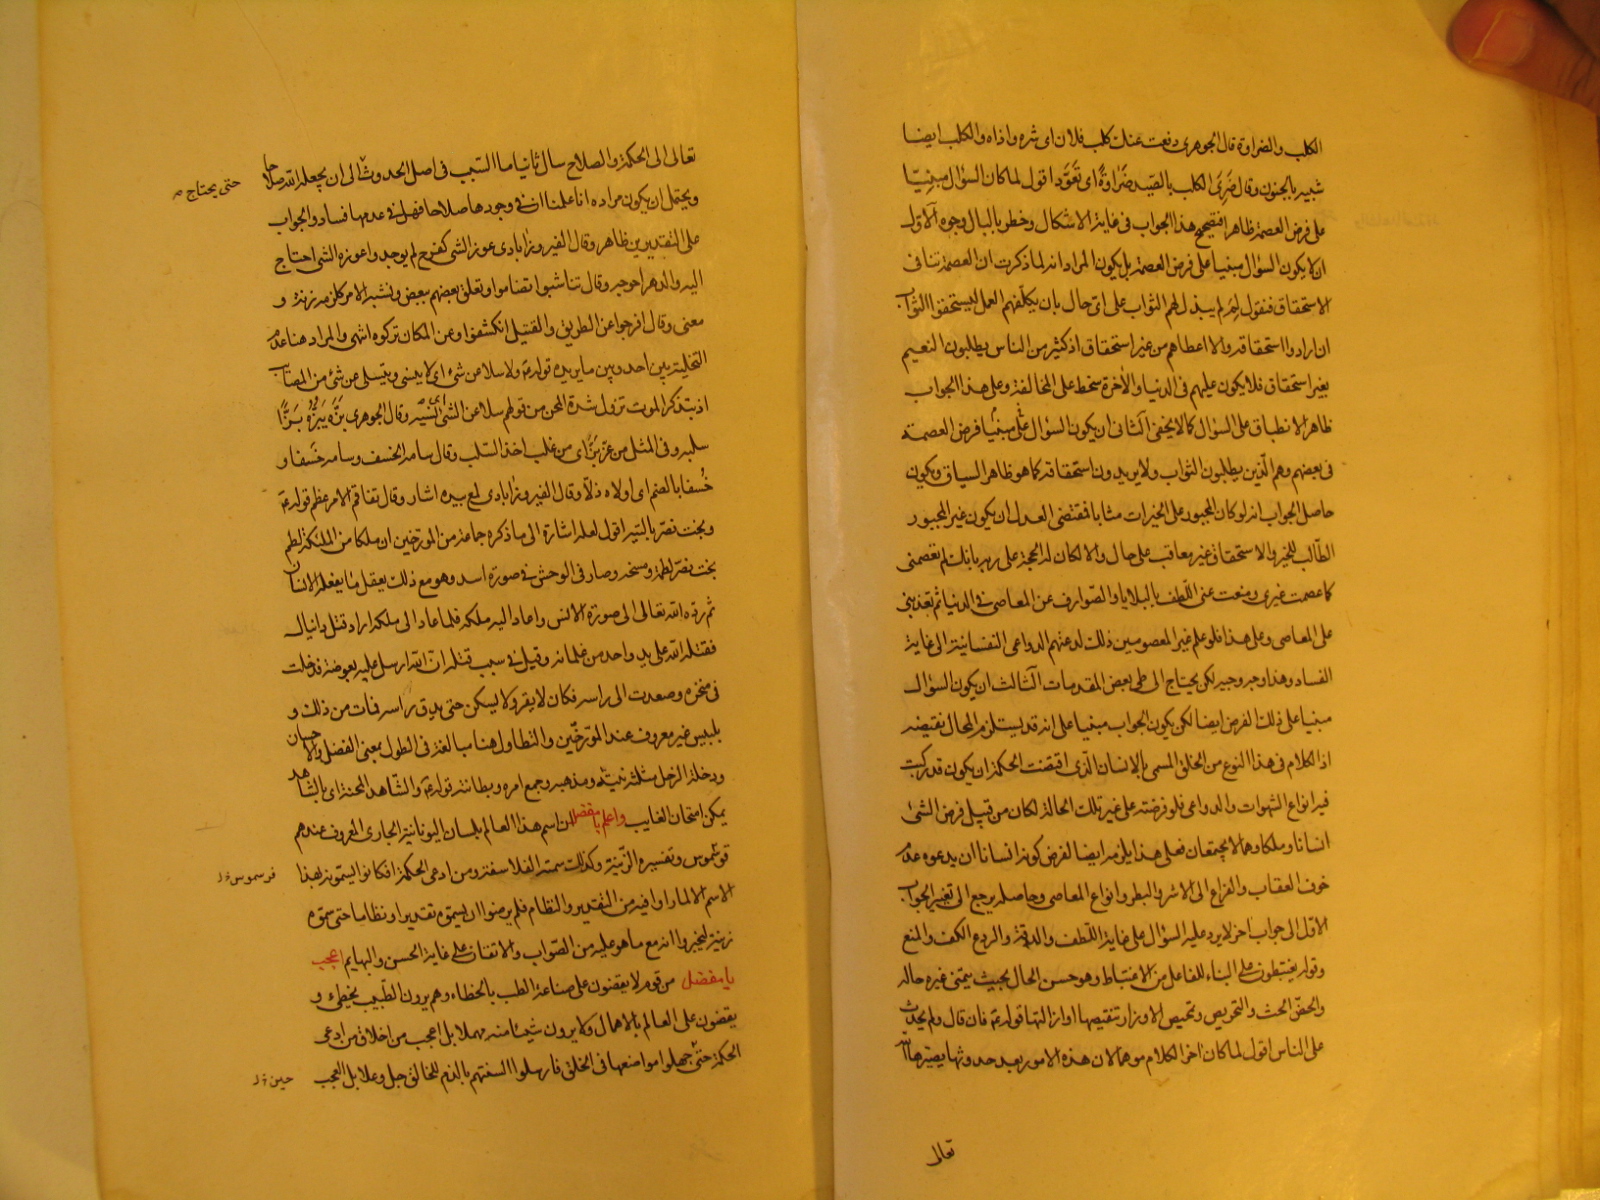 الكلب والضراوة قال الجوهرى دفعت عنك كلب فلان اى شره واذاه والكلب ايضا
شبيه بالجنون وقال ضَرِىَ الكلب بالصّيد ضَرَاوةً اى تَعَوَّدَ اقول لما كان السؤال مبنيّا
على فرض العصمة ظاهرا فتصحيح هذا الجواب فى غاية الاشكال وخطر بالبال وجوه الاوّل
ان لا يكون السؤال مبنيا على فرض العصمة بل يكون المراد انه لما ذكرت ان العصمة تنافى
الاستحقاق فنقول لِمَ لم يبذل لهم الثواب على اىّ حال بان يكلّفهم العمل ليستحقوا الثواب
ان ارادوا استحقاقه والا اعطاهم من غير استحقاق اذ كثير من الناس يطلبون النعيم
بغير استحقاق فلا يكون عليهم فى الدنيا والاخرة سخط على المخالفة وعلى هذا الجواب
ظاهر الانطباق على السؤال كما لا يخفى الثانى ان يكون السؤال مبنيّا على فرض العصمة
فى بعضهم وهم الّذين يطلبون الثواب ولا يريدون استحقاقه كما هو ظاهر السياق ويكون
حاصل الجواب انه لو كان المجبور على الخيرات مثابا فمقتضى العدل ان يكون غير المجبور
الطّالب للخير والاستحقاق غير معاقب على حال والا لكان له الحجة على ربه بانك لم تعصمنى
كما عصمت غيرى ومنعت عنى اللّطف بالبلايا والصّوارف عن المعاصى فى الدنيا ثم تعذبنى
على المعاصى وعلى هذا فلو علم غير المعصومين ذلك لدعتهم الدواعى النفسانية الى غاية
الفساد وهذا وجه وجيه لكن يحتاج الى طى بعض المقدمات الثالث ان يكون السؤال
مبنيا على ذلك الفرض ايضا لكن يكون الجواب مبنيا على انه قد يستلزم المحال نقيضه
اذ الكلام فى هذا النوع من الخلق المسمى بالانسان الّذى اقتضت الحكمة ان يكون قد ركبت
فيه انواع الشهوات والدواعى فلو فرضته على غير تلك الحالة لكان من قبيل فرض الشئ
انسانا وملكا وهما لا يجتمعان فعلى هذا يلزمه ايضا لفرض كونه انسانا ان يدعوه عدم
خوف العقاب والفراغ الى الاشر والبطر وانواع المعاصى وحاصله يرجع الى تغيير الجواب
الاوّل الى جواب اخر لا يرد عليه السؤال على غاية اللّطف والدقة والردع الكف والمنع
وقوله يغتبطون على البناء للفاعل من الاغتباط وهو حسن الحال بحيث يتمنى غيره حاله
والحضّ الحث والتحريص وتمحيص الاوزار تنقيصها او ازالتها قوله ع فان قال ولم يحدث
على الناس اقول لما كان اخر الكلام موهما لان هذه الامور بعد حدوثها يصيرها الله
تعالى
تعالى الى الحكمة والصلاح سال ثانيا ما السّبب فى اصل الحدوث الى ان يجعله الله صلاحا
حتى يحتاج م
ويحتمل ان يكون مراده انا علمنا ان فى وجودها صلاحا فهل فى عدمها فساد والجواب
على التقديرين ظاهر وقال الفيروزابادى عوز الشئ كفرح لم يوجد واعوزه الشئ احتاج
اليه والدهر احوجه وقال تناشبوا تضاموا وتعلق بعضهم ببعض ونشبه الامر كلزمه زنة و
معنى وقال افرجوا عن الطريق والقتيل انكشفوا وعن المكان تركوه انتهى والمراد هنا عدم
التخلية بين احد وبين ما يريده قوله ع ولا سلا عن شئ اى لا ينسى ويتسلى عن شئ من المصائب
اذ بتذكر الموت تزول شدة المحن من قولهم سلا عن الشئ اى نسيه وقال الجوهرى بَزَّه يَبُزُّه بَزًّا
سلبه وفى المثل من عزّ بَزّ اى من غلب اخذ السّلب وقال سامه الخسف وسامه خَسفا و
خُسفا بالضم اى اولاه ذلّا وقال الفيروزابادى لمع بيده اشار وقال تفاقم الامر عظم قوله ع
وبخت نصّر بالتّيه اقول لعله اشارة الى ما ذكره جماعة من المورّخين ان ملكا من الملئكة لطم
بخت نصّر لطمة ومسخه وصار فى الوحش فى صورة اسد وهو مع ذلك يعقل ما يفعله الانسان
ثم ردّه الله تعالى الى صورة الانس واعاد اليه ملكه فلما عاد الى ملكه اراد قتل دانيال
فقتله الله على يد واحد من غلمانه وقيل فى سبب قتله انّ الله ارسل عليه بعوضة فدخلت
فى منخره وصعدت الى راسه فكان لا يقر ولا يسكن حتى يدق راسه فمات من ذلك و
بلبيس غير معروف عند المورّخين والتطاول هنا مبالغة فى الطول بمعنى الفضل والاحسان
ودخلة الرّجل مثلثة نيّته ومذهبه وجميع امره وبطانته قوله ع والشّاهد المحنة اى بالشّاهد
يمكن امتحان الغايب واعلم يا مفضّل ان اسم هذا العالم بلسان اليونانيّة الجارى المعروف عندهم
قوسموس وتفسيره الزّينة وكذلك سمّته الفلاسفة ومن ادعى الحكمة افكانوا يسمّونه بهذا
فرسموس خ ل
الاسم الا لما راوا فيه من التقدير والنظام فلم يرضوا ان يسمّوه تقديرا ونظاما حتى سمّوه
زينة ليخبروا انه مع ما هو عليه من الصّواب والاتقان على غاية الحسن والبهاء اعجب
يا مفضّل من قوم لا يقضون على صناعة الطب بالخطاء وهم يرون الطّبيب يخطئ و
يقضون على العالم بالاهمال ولا يرون شيئا منه مهملا بل اعجب من اخلاق من ادعى
الحكمة حتّى جهلوا مواضعها فى الخلق فارسلوا السنتهم بالذم للخالق جل وعلا بل العجب
حين خ ل